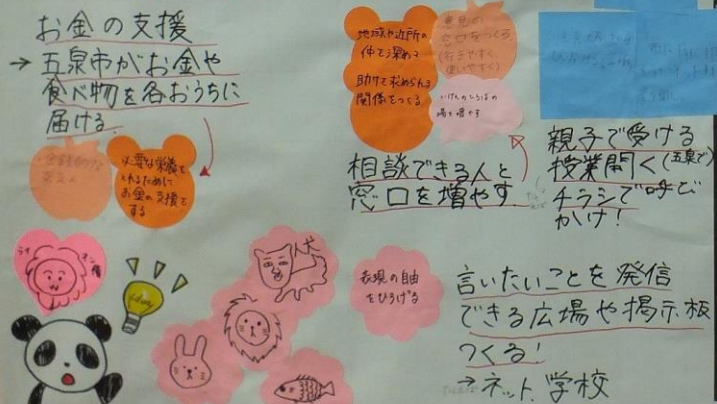 お金の支援
→五泉市がお金や
食べ物を各おうちに
届ける。
必要な栄養を
とれるために
お金の支援を
する
地域や近所の
仲を深めて
助けて求められる
関係をつくる
意見の
窓口をつくる
(行きやすく、
使いやすく)
いけんのひろばの
場を増やす
相談できる人と
窓口を増やす
親子で受ける
授業開く(五泉で)
チラシで呼び
かけ!
ライオン
犬
表現の自由
をひろげる
言いたいことを発信
できる広場や掲示板
つくる!
→ネット、学校